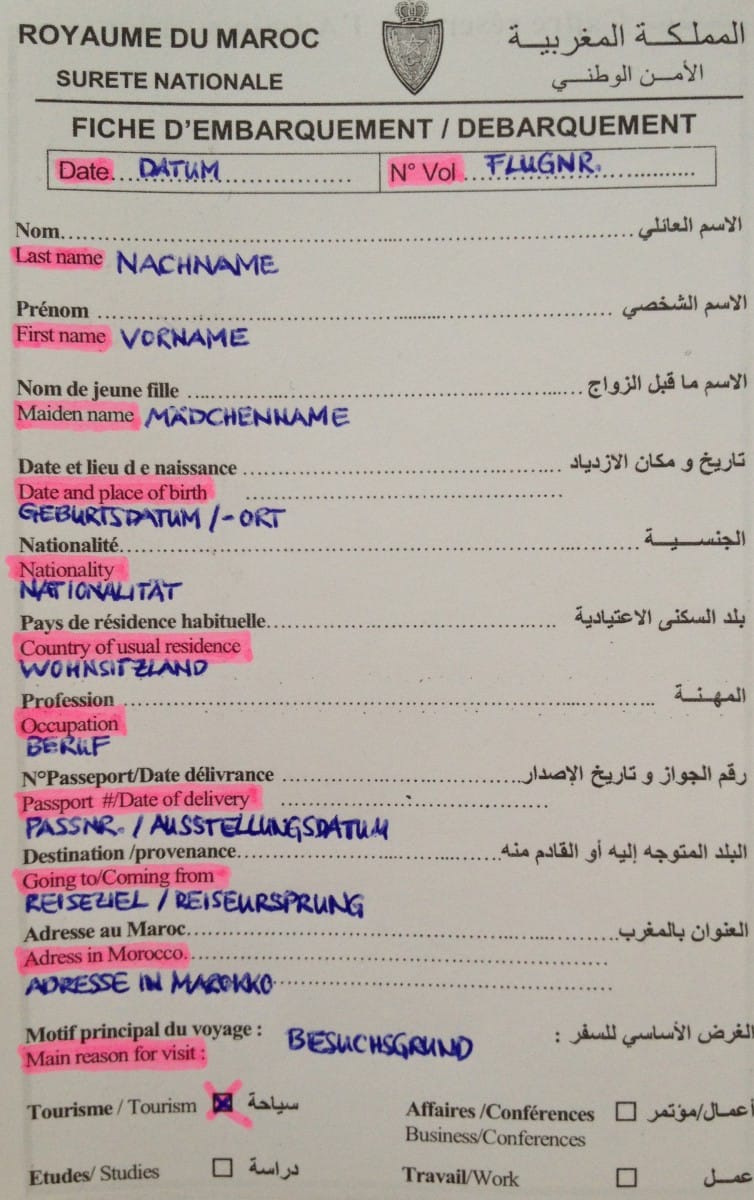 ROYAUME DU MAROC المملكة المغربية
SURETE NATIONALE الأمن الوطني
FICHE D'EMBARQUEMENT / DEBARQUEMENT
Date... DATUM ............ N° Vol... FLUGNR. ............
Nom............ الاسم العائلي
Last name NACHNAME
Prénom ............ الاسم الشخصي
First name VORNAME
Nom de jeune fille ............ الاسم ما قبل الزواج
Maiden name MÄDCHENNAME
Date et lieu d e naissance ............ تاريخ و مكان الازدياد
Date and place of birth ............
GEBURTSDATUM /-ORT
Nationalité............ الجنسية
Nationality
NATIONALITÄT
Pays de résidence habituelle............ بلد السكنى الاعتيادية
Country of usual residence
WOHNSITZLAND
Profession ............ المهنة
Occupation
BERUF
N°Passeport/Date délivrance ............ رقم الجواز و تاريخ الإصدار
Passport #/Date of delivery ............
PASSNR. / AUSSTELLUNGSDATUM
Destination /provenance............ البلد المتوجه إليه أو القادم منه
Going to/Coming from
REISEZIEL / REISEURSPRUNG
Adresse au Maroc............ العنوان بالمغرب
Adress in Morocco............
ADRESSE IN MAROKKO............
Motif principal du voyage : BESUCHSGRUND الغرض الأساسي للسفر :
Main reason for visit :
Tourisme / Tourism ☒ سياحة Affaires /Conférences ☐ أعمال/مؤتمر
Business/Conferences
Etudes/ Studies ☐ دراسة Travail/Work ☐ عمل